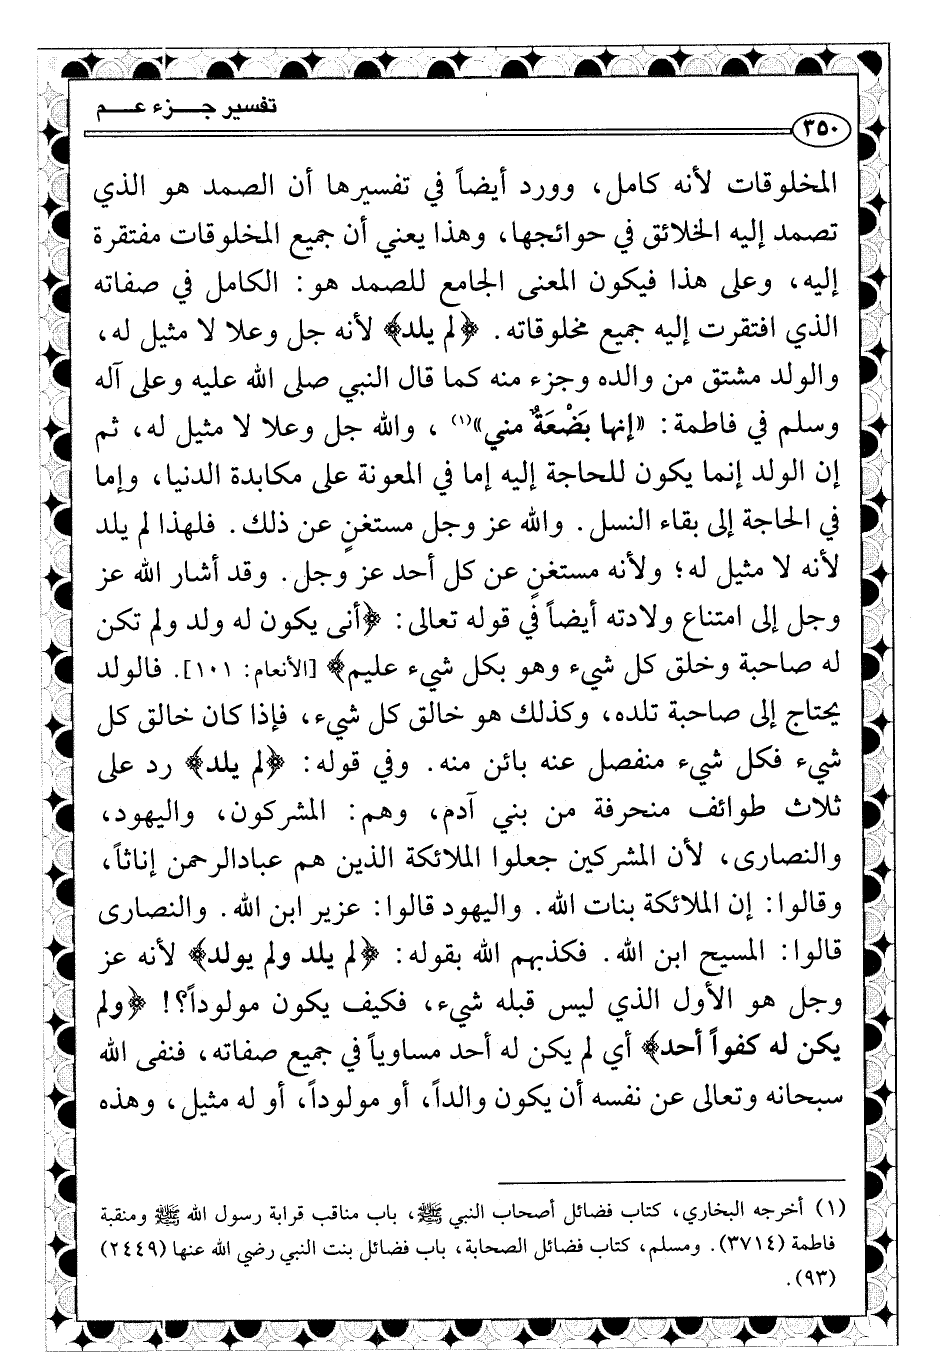 تفسير جزء عم
٣٥٠
المخلوقات لأنه كامل، وورد أيضاً في تفسيرها أن الصمد هو الذي
تصمد إليه الخلائق في حوائجها، وهذا يعني أن جميع المخلوقات مفتقرة
إليه، وعلى هذا فيكون المعنى الجامع للصمد هو: الكامل في صفاته
الذي افتقرت إليه جميع مخلوقاته. ﴿لم يلد﴾ لأنه جل وعلا لا مثيل له،
والولد مشتق من والده وجزء منه كما قال النبي صلى الله عليه وعلى آله
وسلم في فاطمة: «إنها بَضْعَةٌ مني»(١) ، والله جل وعلا لا مثيل له، ثم
إن الولد إنما يكون للحاجة إليه إما في المعونة على مكابدة الدنيا، وإما
في الحاجة إلى بقاء النسل. والله عز وجل مستغنٍ عن ذلك. فلهذا لم يلد
لأنه لا مثيل له؛ ولأنه مستغنٍ عن كل أحد عز وجل. وقد أشار الله عز
وجل إلى امتناع ولادته أيضاً في قوله تعالى: ﴿أنى يكون له ولد ولم تكن
له صاحبة وخلق كل شيء وهو بكل شيء عليم﴾ [الأنعام: ١٠١]. فالولد
يحتاج إلى صاحبة تلده، وكذلك هو خالق كل شيء، فإذا كان خالق كل
شيء فكل شيء منفصل عنه بائن منه. وفي قوله: ﴿لم يلد﴾ رد على
ثلاث طوائف منحرفة من بني آدم، وهم: المشركون، واليهود،
والنصارى، لأن المشركين جعلوا الملائكة الذين هم عبادالرحمن إناثاً،
وقالوا: إن الملائكة بنات الله. واليهود قالوا: عزير ابن الله. والنصارى
قالوا: المسيح ابن الله. فكذبهم الله بقوله: ﴿لم يلد ولم يولد﴾ لأنه عز
وجل هو الأول الذي ليس قبله شيء، فكيف يكون مولوداً؟! ﴿ولم
يكن له كفواً أحد﴾ أي لم يكن له أحد مساوياً في جميع صفاته، فنفى الله
سبحانه وتعالى عن نفسه أن يكون والداً، أو مولوداً، أو له مثيل، وهذه
(١) أخرجه البخاري، كتاب فضائل أصحاب النبي ﷺ، باب مناقب قرابة رسول الله ﷺ ومنقبة
فاطمة (٣٧١٤). ومسلم، كتاب فضائل الصحابة، باب فضائل بنت النبي رضي الله عنها (٢٤٤٩)
(٩٣).